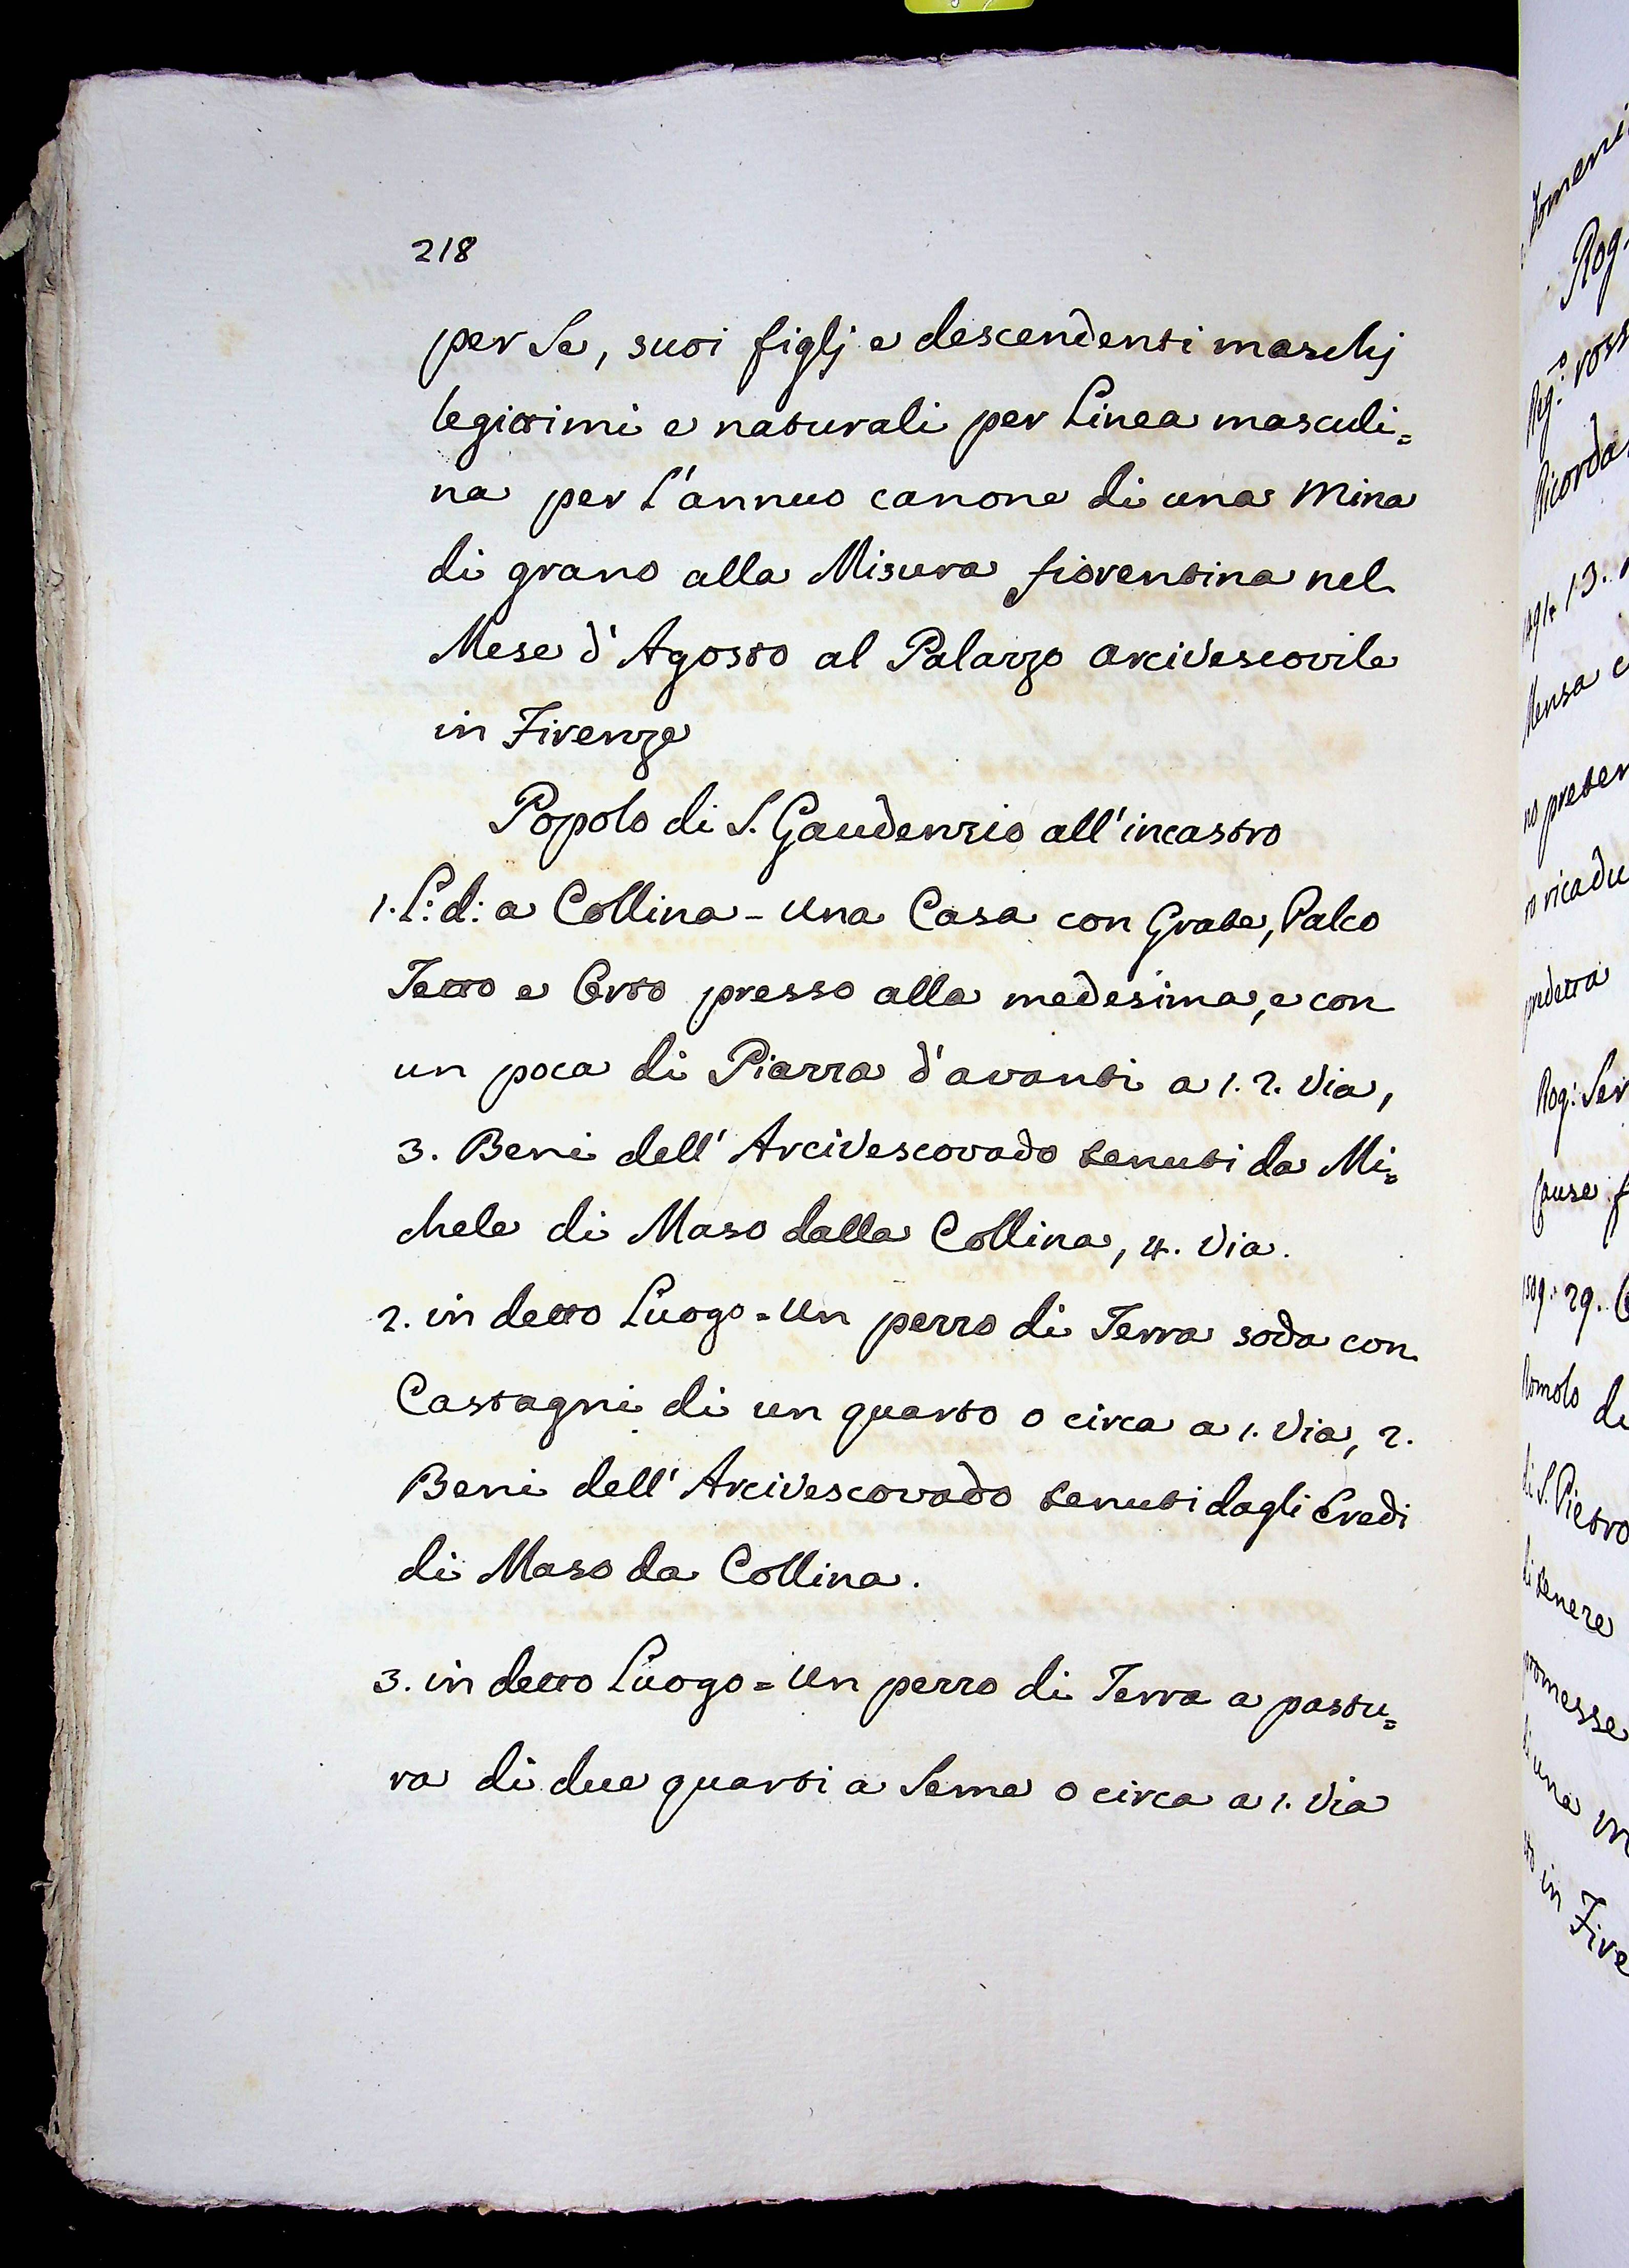 218
per Se, suoi figlj e descendenti maschj
legittimi e naturali per Linea masculi=
na per l'annuo canone di una Mina
di grano alla Misura fiorentina nel
Mese d'Agosto al Palazzo Arcivescovile
in Firenze
Popolo di S. Gaudenzio all'incastro
1. L: d: a Collina - Una Casa con Grate, Palco
Tetto e Orto presso alla medesima, e con
un poca di Piazza d'avanti a 1. 2. Via,
3. Beni dell'Arcivescovado tenuti da Mi=
chele di Maso dalla Collina, 4. Via.
2. in detto Luogo = Un pezzo di Terra soda con
Castagni di un quarto o circa a 1. Via, 2.
Beni dell'Arcivescovado tenuti dagli Eredi
di Maso da Collina.
3. in detto Luogo = Un pezzo di Terra a pastu=
ra di due quarti a Seme o circa a 1. Via
Rog.
Ricorda
13.
Mensa
predetta
Rog: Ser
29.
Romolo di
di S. Pietro
di tenere
promesse
una
in Fire